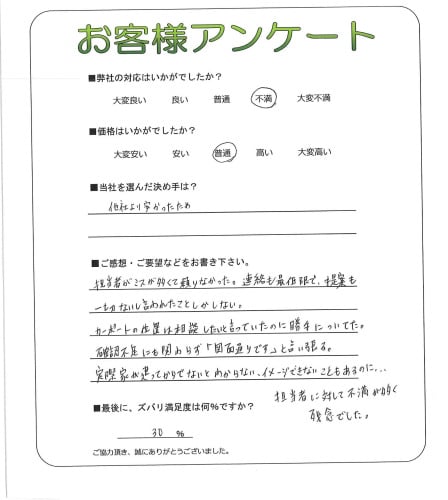 お客様アンケート
■弊社の対応はいかがでしたか？
大変良い 良い 普通 不満 大変不満
■価格はいかがでしたか？
大変安い 安い 普通 高い 大変高い
■当社を選んだ決め手は？
他社より安かったため
■ご感想・ご要望などをお書き下さい。
担当者がミスが多くて頼りなかった。連絡も最低限で、提案も
一切ないし言われたことしかしない。
カーポートの位置は相談したいと言っていたのに勝手についてた。
確認不足にも関わらず「図面通りです」と言い張る。
実際家が建ってからでないとわからない、イメージできないこともあるのに…
担当者に対して不満が多く
残念でした。
■最後に、ズバリ満足度は何%ですか？
30 %
ご協力頂き、誠にありがとうございました。